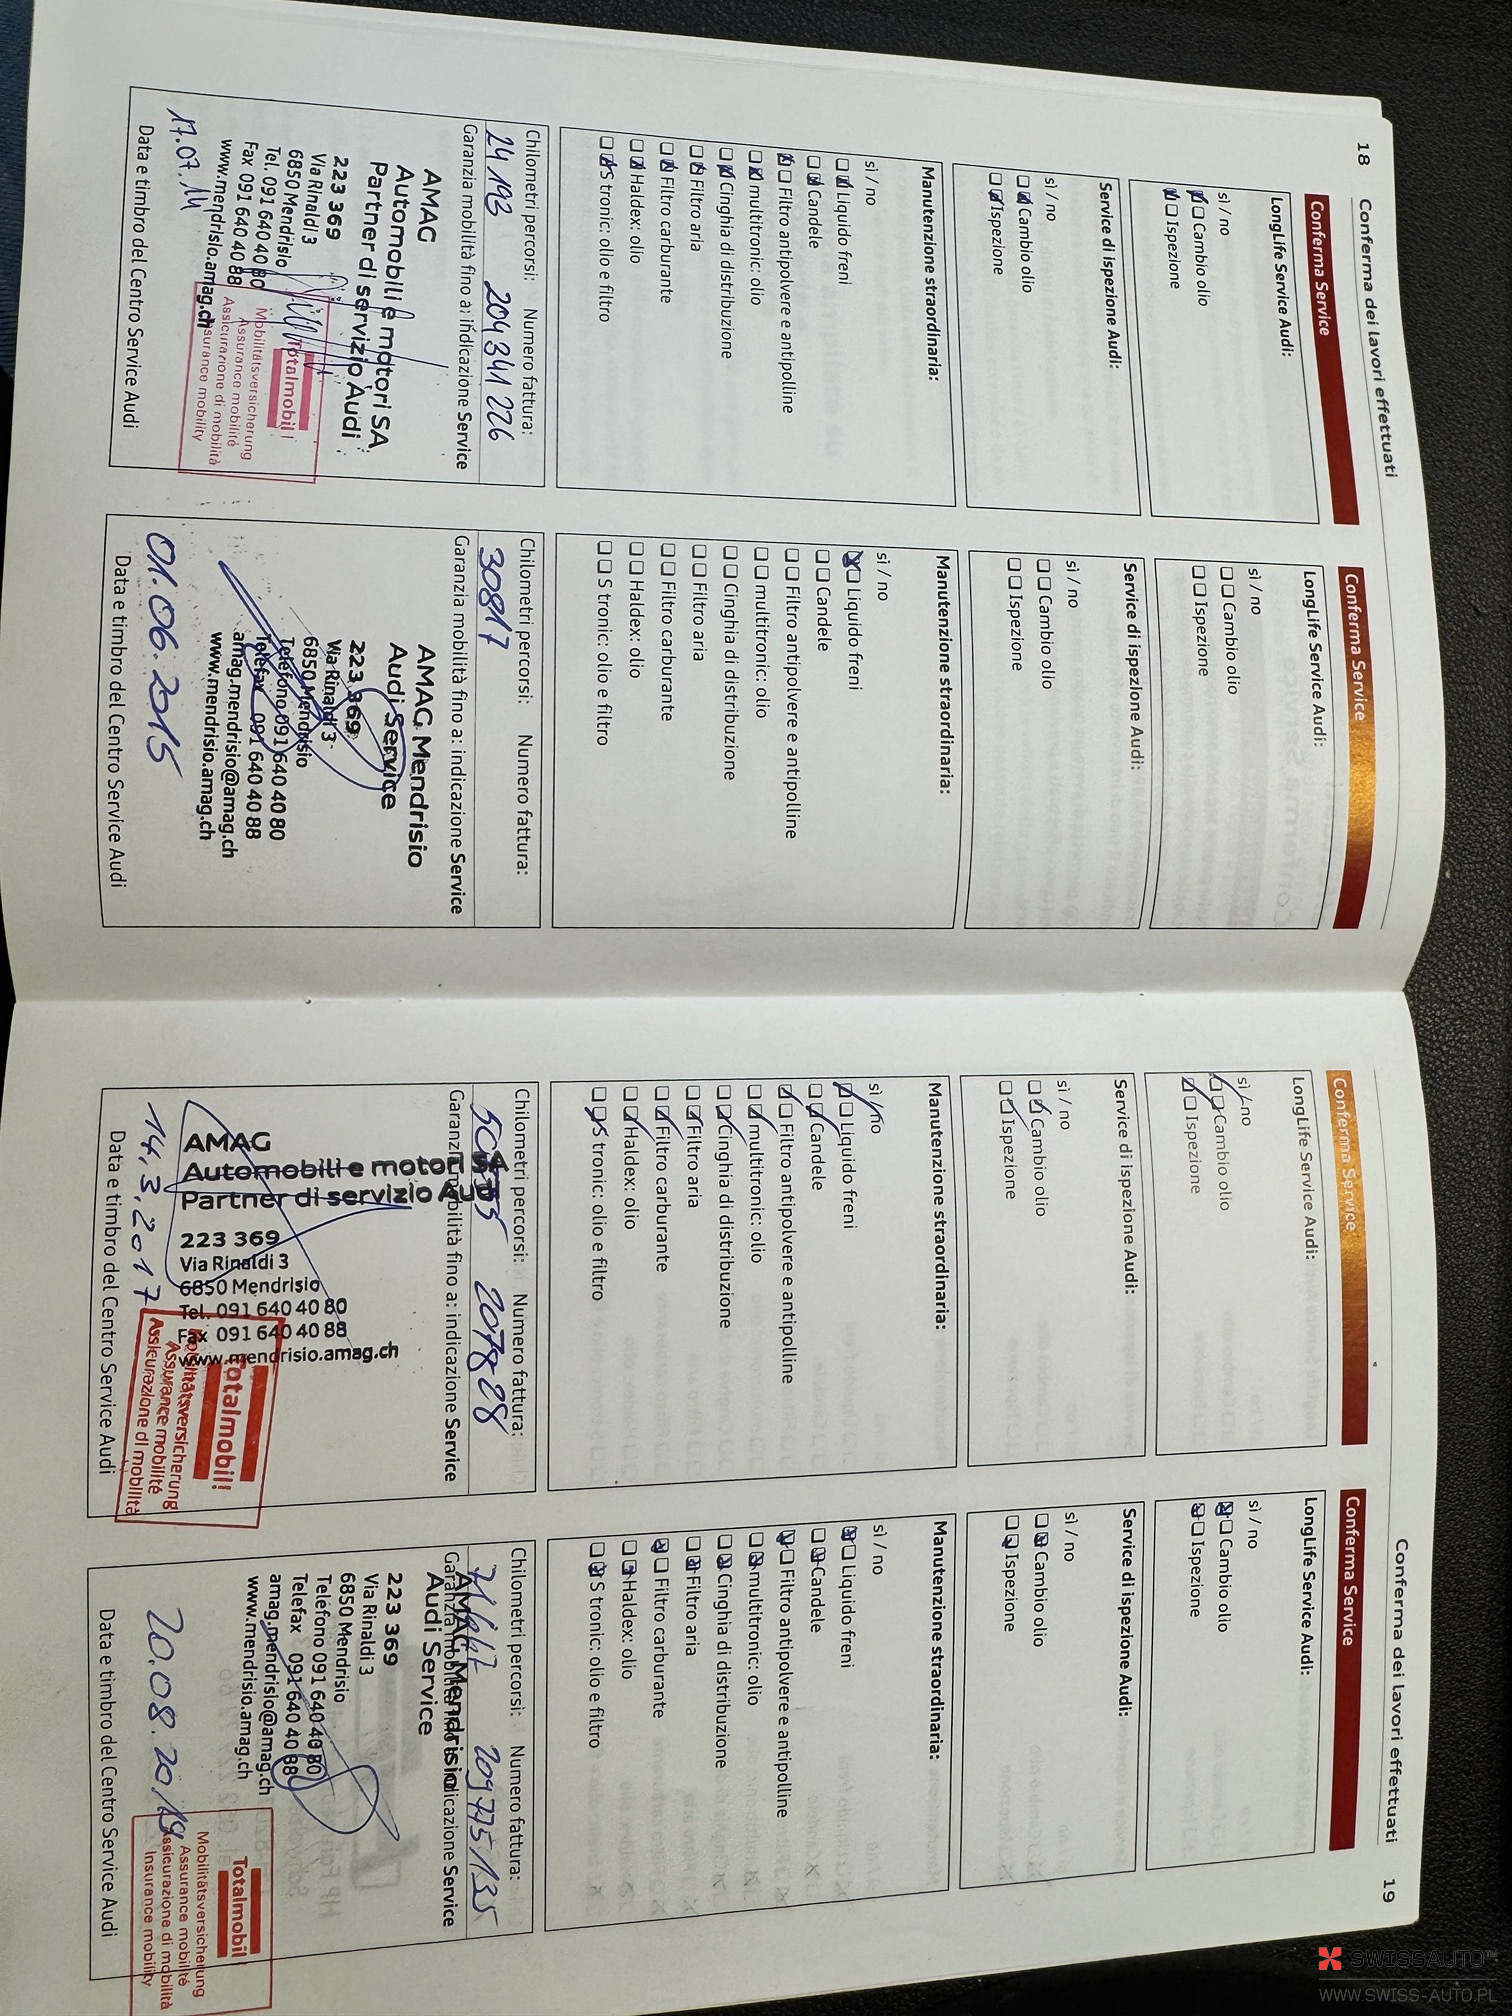 18
Conferma dei lavori effettuati
Conferma Service
LongLife Service Audi:
sì / no
Cambio olio
Ispezione
Service di ispezione Audi:
sì / no
Cambio olio
Ispezione
Manutenzione straordinaria:
sì / no
Liquido freni
Candele
Filtro antipolvere e antipolline
multitronic: olio
Cinghia di distribuzione
Filtro aria
Filtro carburante
Haldex: olio
S tronic: olio e filtro
Chilometri percorsi: Numero fattura:
24193 204341226
Garanzia mobilità fino a: indicazione Service
AMAG
Automobili e motori SA
Partner di servizio Audi
223 369
Via Rinaldi 3
6850 Mendrisio
Tel. 091 640 40 80
Fax 091 640 40 88
www.mendrisio.amag.ch
Totalmobil!
Mobilitätsversicherung
Assurance mobilité
Assicurazione di mobilità
Insurance mobility
17.07.14
Data e timbro del Centro Service Audi
Conferma Service
LongLife Service Audi:
sì / no
Cambio olio
Ispezione
Service di ispezione Audi:
sì / no
Cambio olio
Ispezione
Manutenzione straordinaria:
sì / no
Liquido freni
Candele
Filtro antipolvere e antipolline
multitronic: olio
Cinghia di distribuzione
Filtro aria
Filtro carburante
Haldex: olio
S tronic: olio e filtro
Chilometri percorsi: Numero fattura:
30817
Garanzia mobilità fino a: indicazione Service
AMAG Mendrisio
Audi Service
223 369
Via Rinaldi 3
6850 Mendrisio
Telefono 091 640 40 80
Telefax 091 640 40 88
amag.mendrisio@amag.ch
www.mendrisio.amag.ch
01.06.2015
Data e timbro del Centro Service Audi
Conferma dei lavori effettuati 19
Conferma Service
LongLife Service Audi:
sì / no
Cambio olio
Ispezione
Service di ispezione Audi:
sì / no
Cambio olio
Ispezione
Manutenzione straordinaria:
sì / no
Liquido freni
Candele
Filtro antipolvere e antipolline
multitronic: olio
Cinghia di distribuzione
Filtro aria
Filtro carburante
Haldex: olio
S tronic: olio e filtro
Chilometri percorsi: Numero fattura:
Garanzia mobilità fino a: indicazione Service
AMAG
Automobili e motori SA
Partner di servizio Audi
223 369
Via Rinaldi 3
6850 Mendrisio
Tel. 091 640 40 80
Fax 091 640 40 88
www.mendrisio.amag.ch
Totalmobil!
Mobilitätsversicherung
Assurance mobilité
Assicurazione di mobilità
14.3.2017
Data e timbro del Centro Service Audi
Conferma Service
LongLife Service Audi:
sì / no
Cambio olio
Ispezione
Service di ispezione Audi:
sì / no
Cambio olio
Ispezione
Manutenzione straordinaria:
sì / no
Liquido freni
Candele
Filtro antipolvere e antipolline
multitronic: olio
Cinghia di distribuzione
Filtro aria
Filtro carburante
Haldex: olio
S tronic: olio e filtro
Chilometri percorsi: Numero fattura:
209775135
Garanzia mobilità fino a: indicazione Service
AMAG Mendrisio
Audi Service
223 369
Via Rinaldi 3
6850 Mendrisio
Telefono 091 640 40 80
Telefax 091 640 40 88
amag.mendrisio@amag.ch
www.mendrisio.amag.ch
Totalmobil!
Mobilitätsversicherung
Assurance mobilité
Assicurazione di mobilità
Insurance mobility
20.08.2019
Data e timbro del Centro Service Audi
SWISSAUTO
WWW.SWISS-AUTO.PL